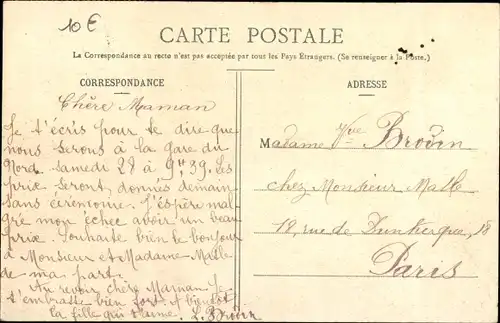 10€
CARTE POSTALE
La Correspondance au recto n'est pas acceptée par tout les Pays Étrangers. (Se renseigner à la Poste.)
CORRESPONDANCE
Chère Maman
Je t'écris pour te dire que
nous serons à la gare du
Nord samedi 28 à 9H39. Les
prix seront donnés demain
sans cérémonie. J'espère mal-
gré mon échec avoir un beau
prix. Souhaite bien le bonjour
à Monsieur et Madame
de ma part.
Au revoir chère Maman Je
t'embrasse bien fort. A bientôt
la fille qui t'aime. L. Brouin
ADRESSE
Madame Vve Brouin
chez Monsieur
18, rue de Dunkerque, 18
Paris